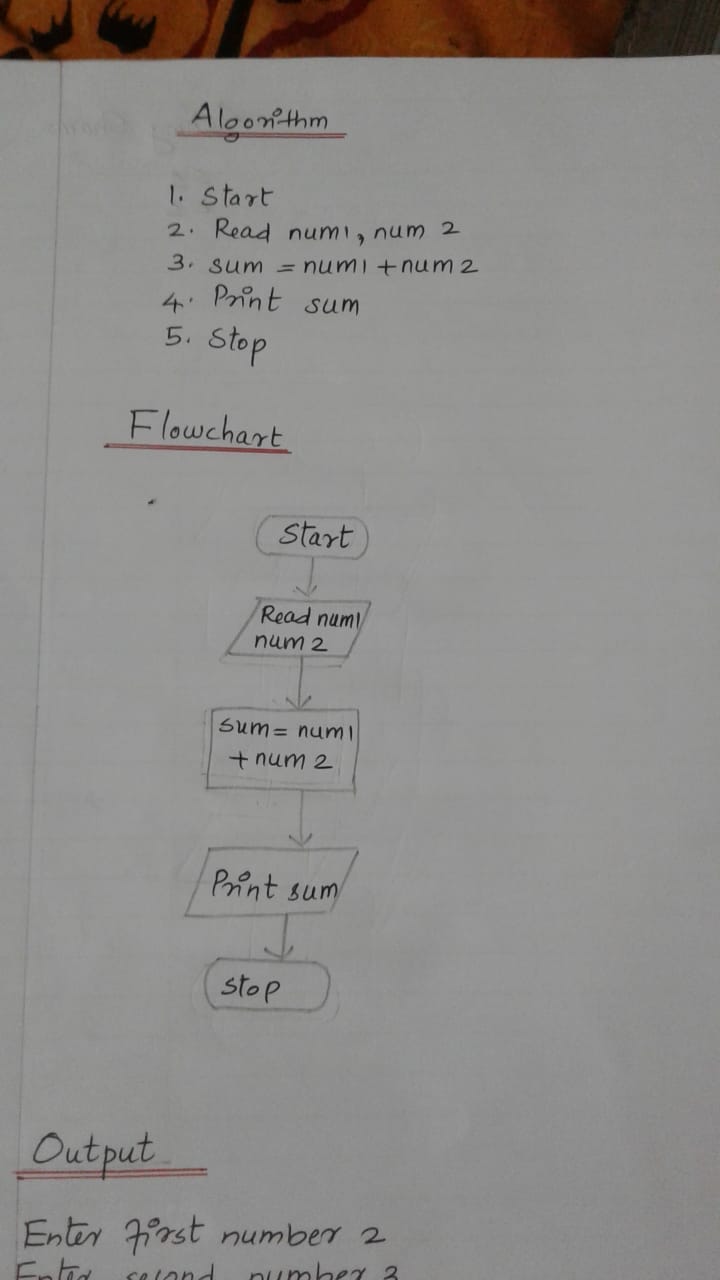 Algorithm
1. Start
2. Read num1, num 2
3. sum = num1 + num 2
4. Print sum
5. Stop
Flowchart
Start
Read num1
num 2
sum = num1
+ num 2
Print sum
stop
Output
Enter first number 2
Enter second number 3